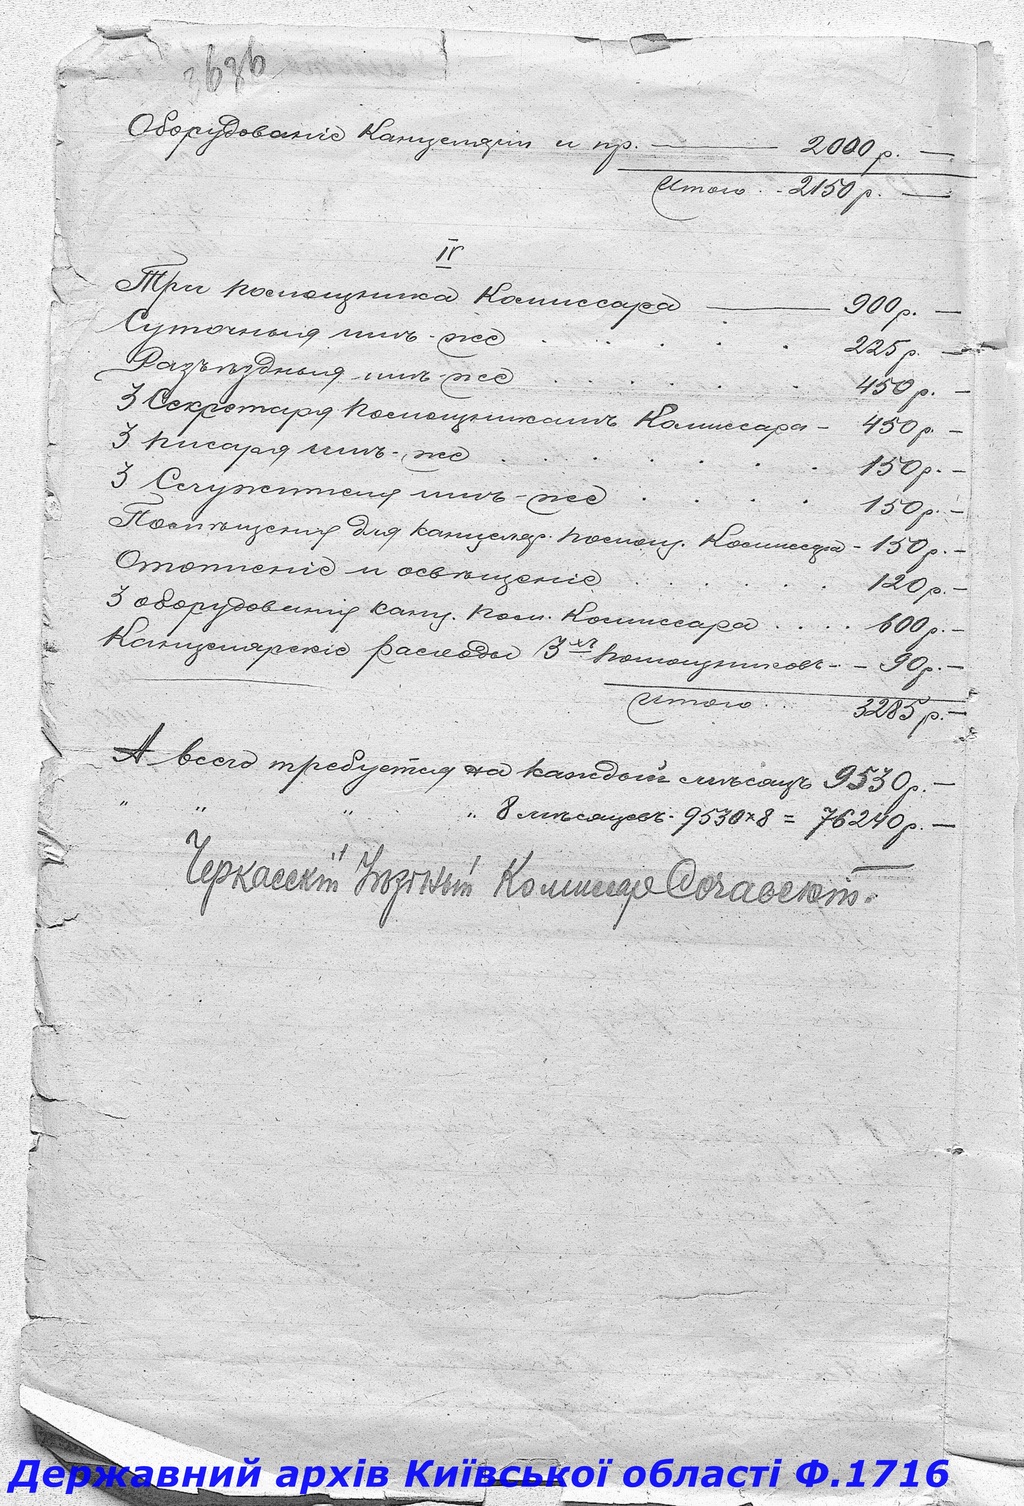 3636
Оборудованіе Канцеляріи и пр. — 2000 р. —
Итого . . 2150 р. —
IV
Три помощника Комиссара — 900 р. —
Суточныя имъ-же . . . . . 225 р. —
Разъѣздныя имъ-же . . . . . 450 р. —
3 Секретаря помощникамъ Комиссара - 450 р. —
3 писаря имъ-же . . . . . . 150 р. —
3 Служителя имъ-же . . . . 150 р. —
Помѣщенія для канцеляр. помощ. Комиссара - 150 р. —
Отопленіе и освѣщеніе . . . . . . 120 р. —
3 оборудованія канц. пом. Комиссара . . . . 600 р. —
Канцелярскіе расходы 3хъ помощниковъ - - 90 р. —
Итого . . 3285 р. —
А всего требуется на каждый мѣсяцъ 9530 р. —
" " " " 8 мѣсяцевъ - 9530 × 8 = 76240 р. —
Черкасскій Уѣздный Комиссар Сочавскій.
Державний архів Київської області Ф.1716